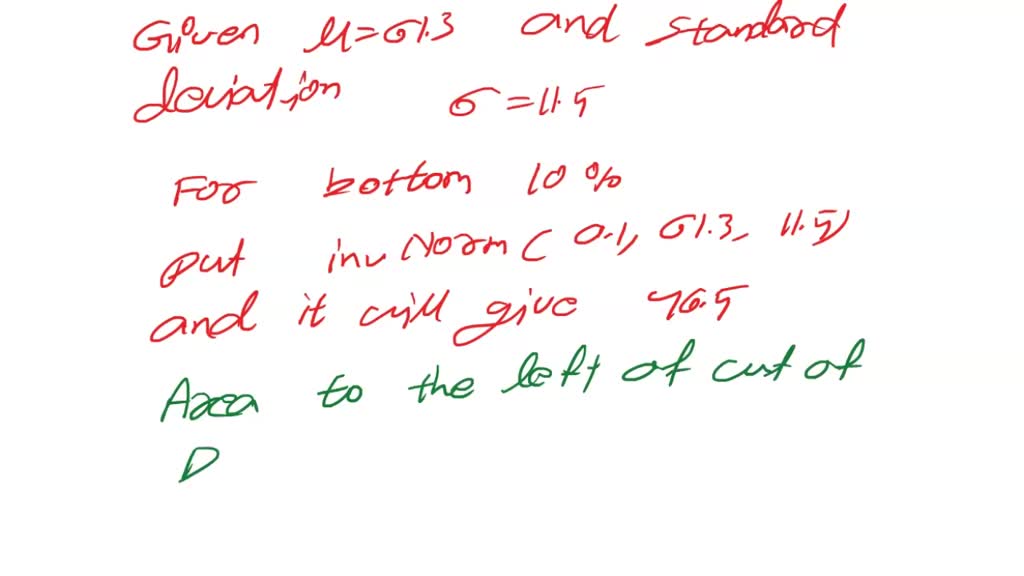 Given μ=61.3 and standard
deviation σ=11.5
For bottom 10%
put invNorm( 0.1, 61.3, 11.5)
and it will give 46.5
Area to the left of cut of
D